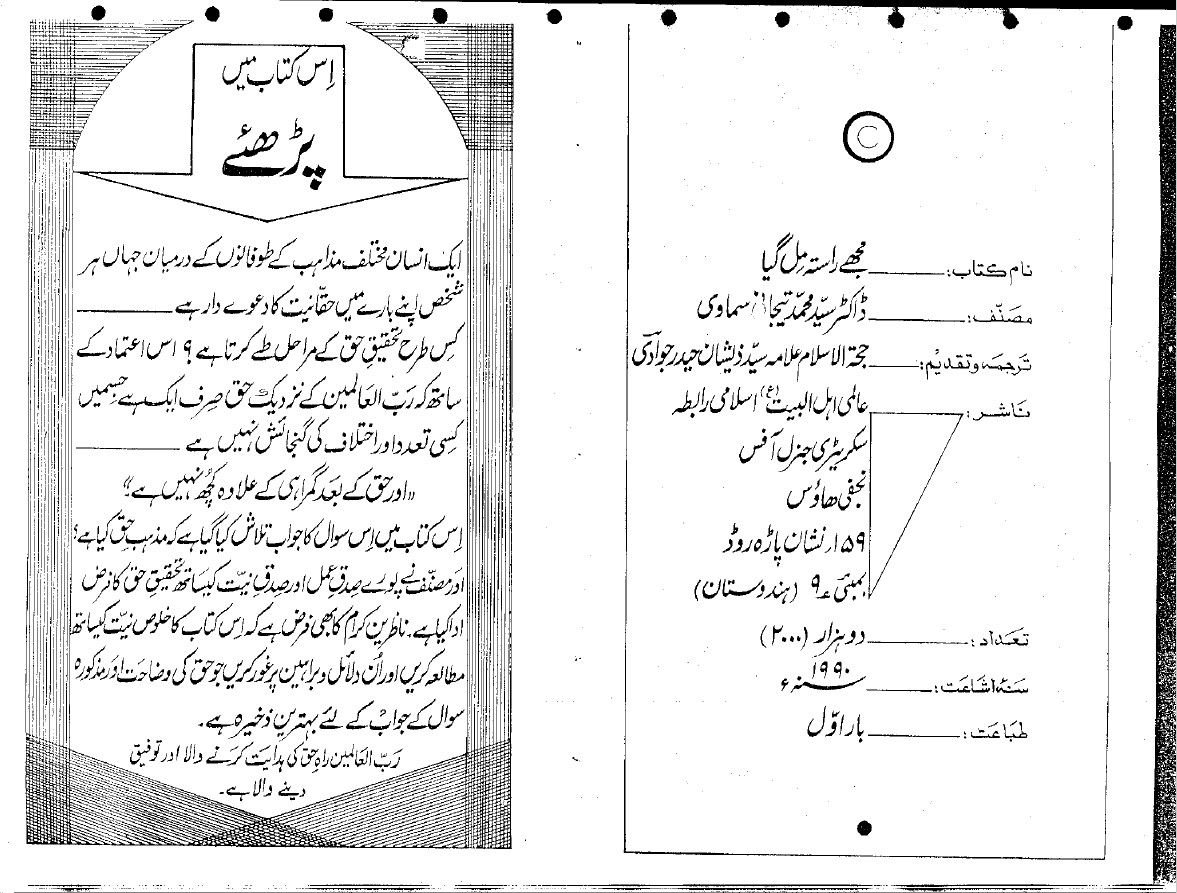 ©
نام کتاب: مجھے راستہ مل گیا
مصنّف: ڈاکٹر سیّد محمّد تیجانی سماوی
ترجمہ وتقدیم: حجۃ الاسلام علامہ سیّد ذیشان حیدر جوادی
ناشر: عالمی اہل البیتؑ اسلامی رابطہ
سکریٹری جنرل آفس
نجفی ھاؤس
۱۵۹؍ نشان پاڑہ روڈ
بمبئی ۹ (ہندوستان)
تعداد: دو ہزار (۲۰۰۰)
سنہ اشاعت: ۱۹۹۰ء
طباعت: بار اوّل
اِس کتاب میں
پڑھئے
ایک انسان مختلف مذاہب کے طوفانوں کے درمیان جہاں ہر
شخص اپنے بارے میں حقّانیت کا دعوے دار ہے
کِس طرح تحقیقِ حق کے مراحل طے کرتا ہے ؟ اس اعتماد کے
ساتھ کہ رَبّ العَالمین کے نزدیک حق صِرف ایک ہے جسمیں
کِسی تعدد اور اختلاف کی گنجائش نہیں ہے
"اور حق کے بعد گمراہی کے علاوہ کُچھ نہیں ہے"
اِس کتاب میں اِس سوال کا جواب تلاش کیا گیا ہے کہ مذہبِ حق کیا ہے؟
اور مصنّف نے پورے صدقِ عمل اور صدقِ نیّت کیساتھ تحقیقِ حق کا فرض
ادا کیا ہے۔ ناظرین کرام کا بھی فرض ہے کہ اِس کتاب کا خلوصِ نیّت کیساتھ
مطالعہ کریں اور اُن دلائل و براہین پر غور کریں جو حق کی وضاحت اور مذکورہ
سوال کے جواب کے لئے بہترین ذخیرہ ہے۔
رَبّ العالمین راہِ حق کی ہدایت کرنے والا اور توفیق
دینے والا ہے۔